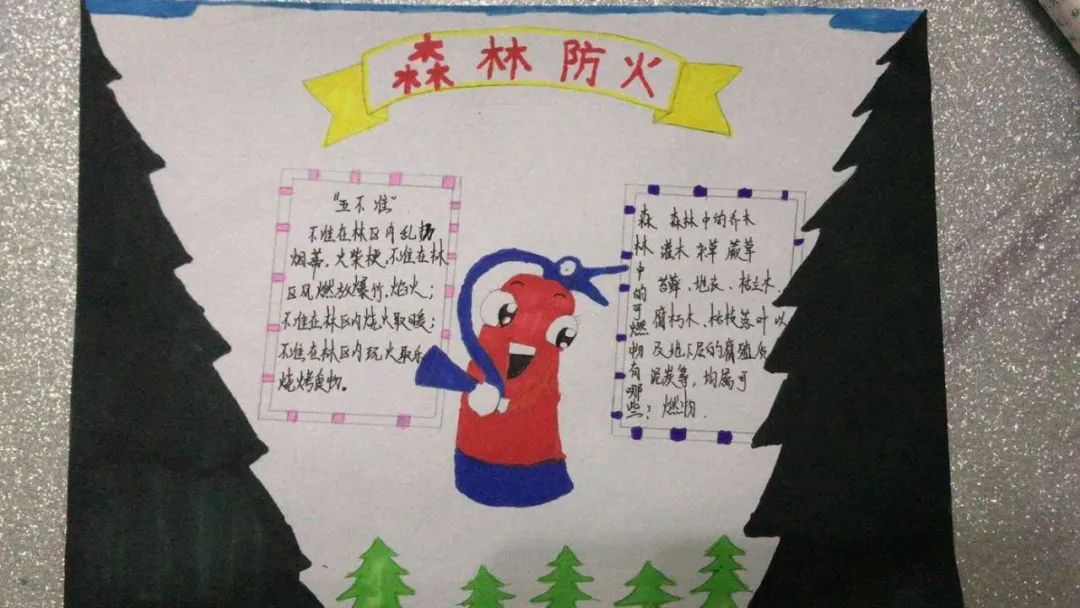 森林防火
"五不准"
不准在林区内乱扔
烟蒂，火柴梗，不准在林
区风燃放爆竹，焰火；
不准在林区内烧火取暖；
不准在林区内玩火取乐
烧烤食物。
森林中的可燃物有哪些？
森林中的乔木
灌木 禾草 蕨草
苔藓、地衣、枯立木、
腐朽木、枯枝落叶以
及地下层的腐殖质
泥炭等，均属可
燃物.